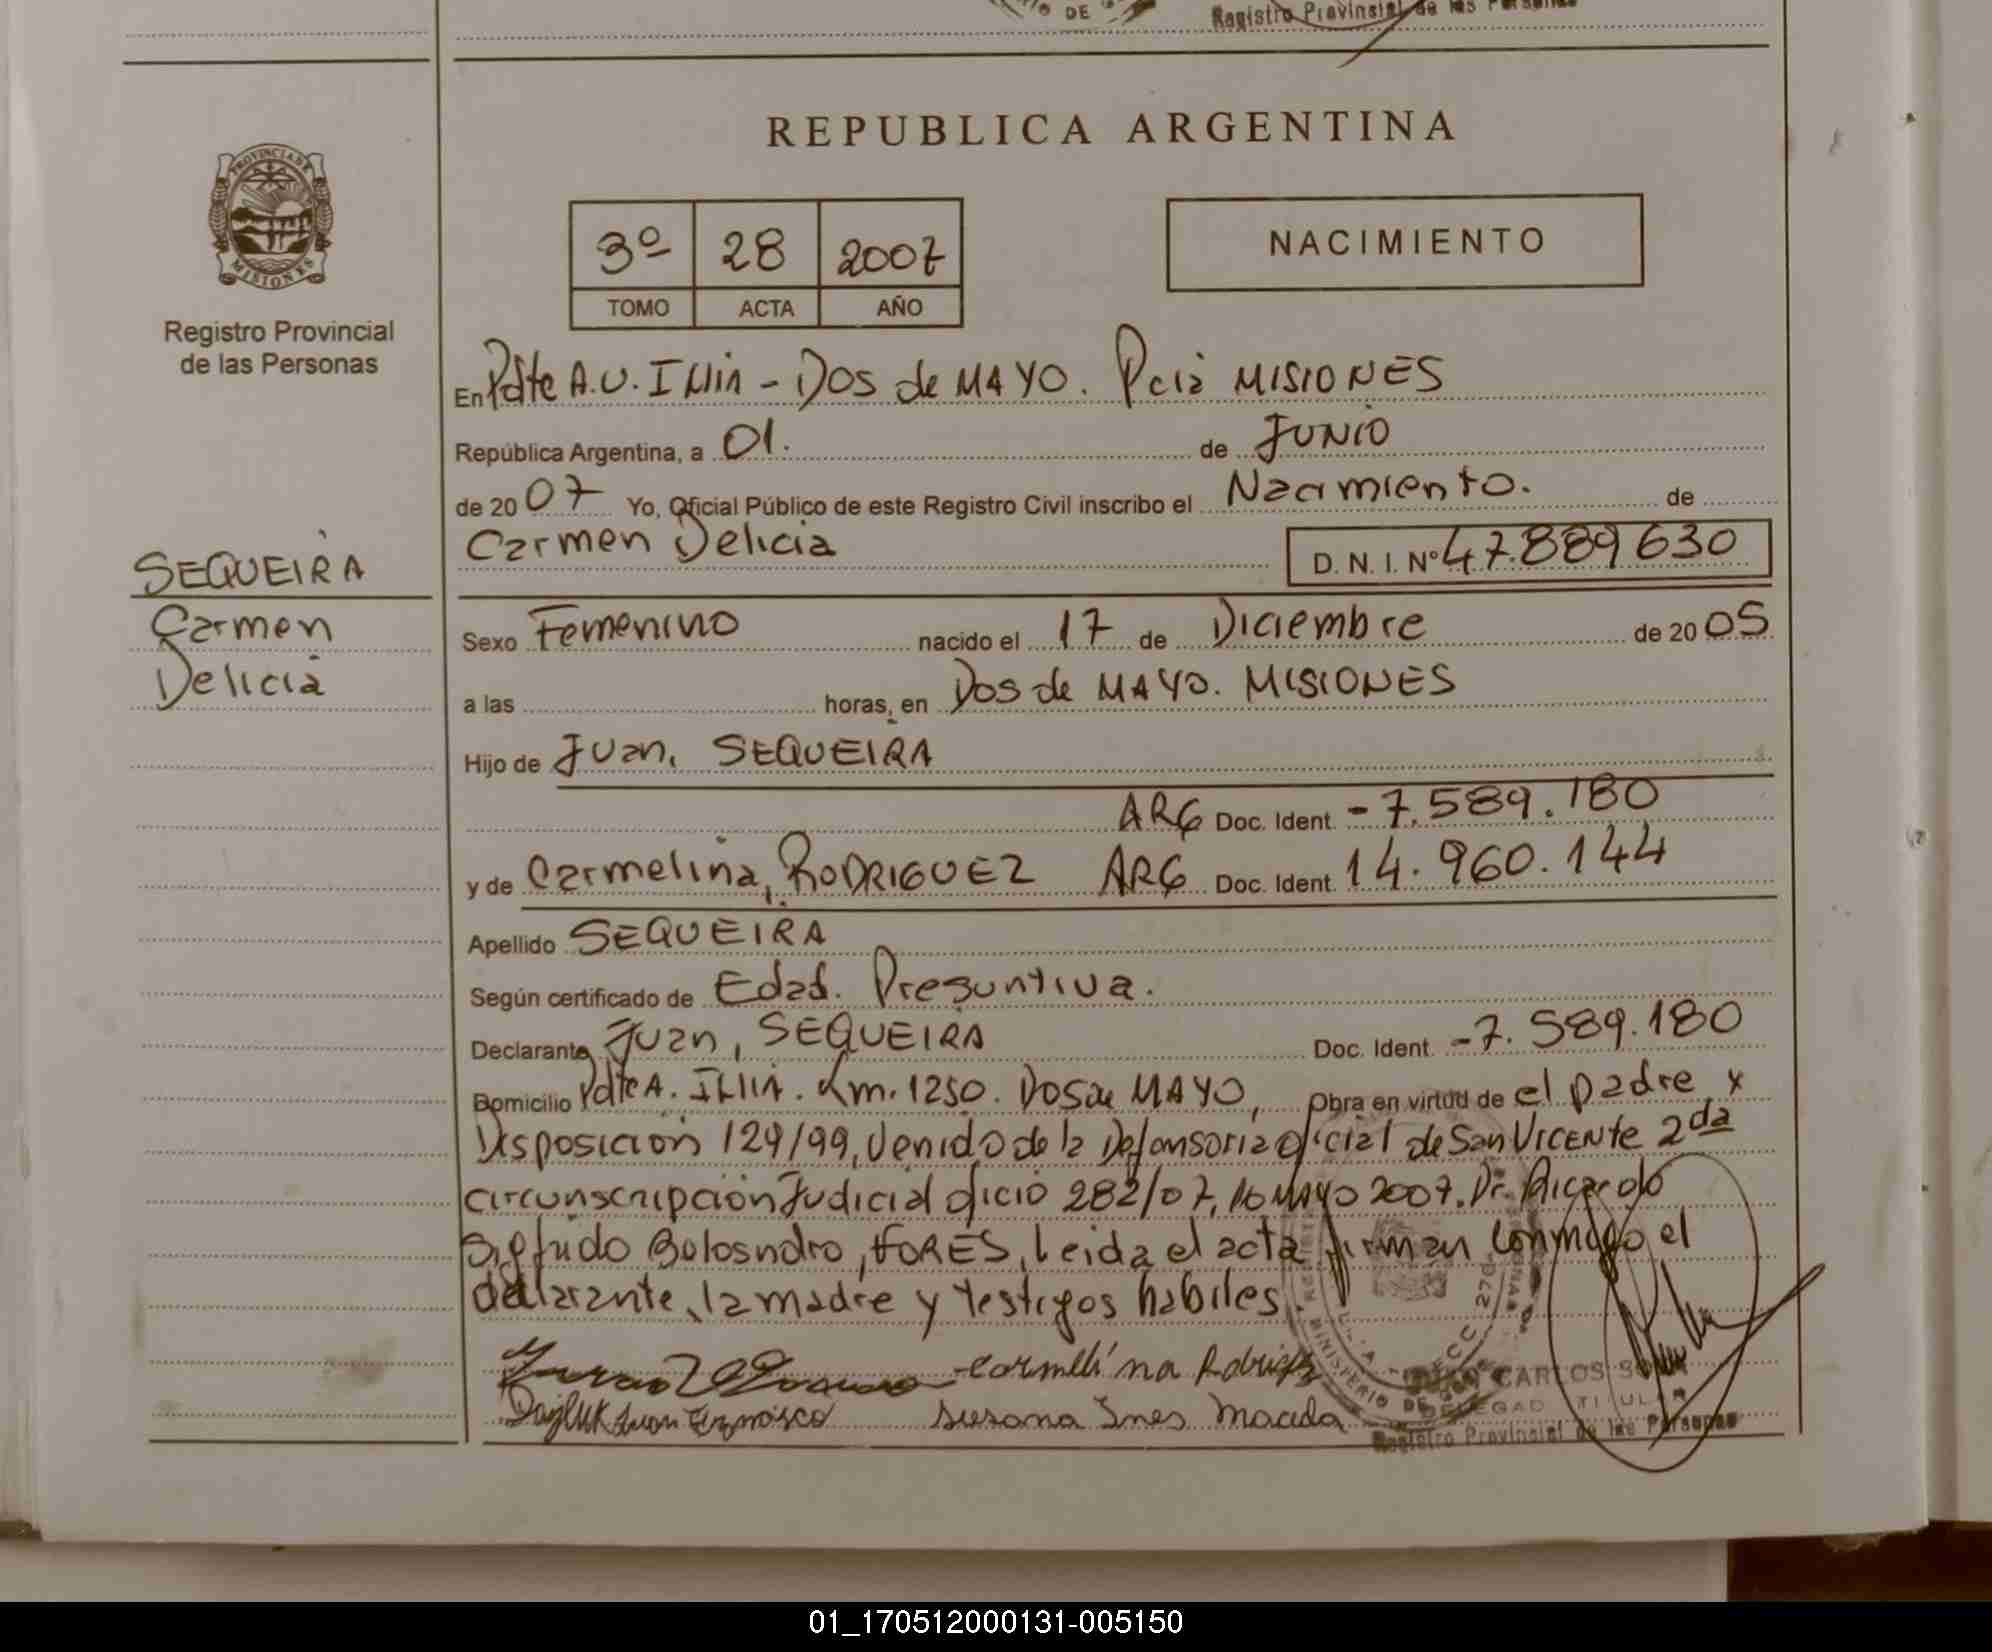 Registro Provincial de las Personas
REPUBLICA ARGENTINA
PROVINCIA DE
MISIONES
Registro Provincial
de las Personas
3º 28 2007
TOMO ACTA AÑO
NACIMIENTO
En Pdte A.U. Illia - Dos de MAYO. Pcia MISIONES
República Argentina, a 01. de JUNIO
de 2007 Yo, Oficial Público de este Registro Civil inscribo el Nacimiento. de
Carmen Delicia D. N. I. Nº 47.889630
SEQUEIRA
Carmen
Delicia
Sexo Femenino nacido el 17 de Diciembre de 2005
a las horas, en Dos de MAYO. MISIONES
Hijo de Juan, SEQUEIRA
ARG Doc. Ident. -7.589.180
y de Carmelina, RODRIGUEZ ARG Doc. Ident. 14.960.144
Apellido SEQUEIRA
Según certificado de Edad. Presuntiva.
Declarante Juan, SEQUEIRA Doc. Ident. -7.589.180
Domicilio Pdte A. Illia. Km. 1250. Dos de MAYO, Obra en virtud de el padre y
Disposición 129/99, venido de la Defensoria oficial de San VICENTE 2da
circunscripción Judicial oficio 282/07, 10 MAYO 2007. Dr. Ricardo
FORES, leida el acta firman conmigo el
declarante, la madre y testigos habiles.
Carmelina
Susana Ines
CARLOS
Registro Provincial de las Personas
01_170512000131-005150